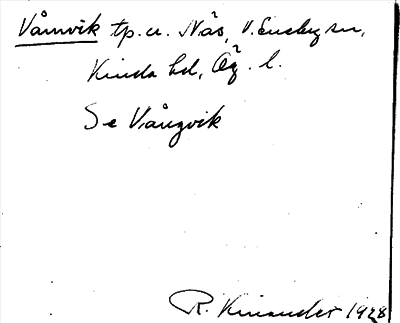 Våmvik tp. u. Näs, V. Eneby sn,
Kinda hd, Ög. l.
Se Vångvik
R. Kinander 1928